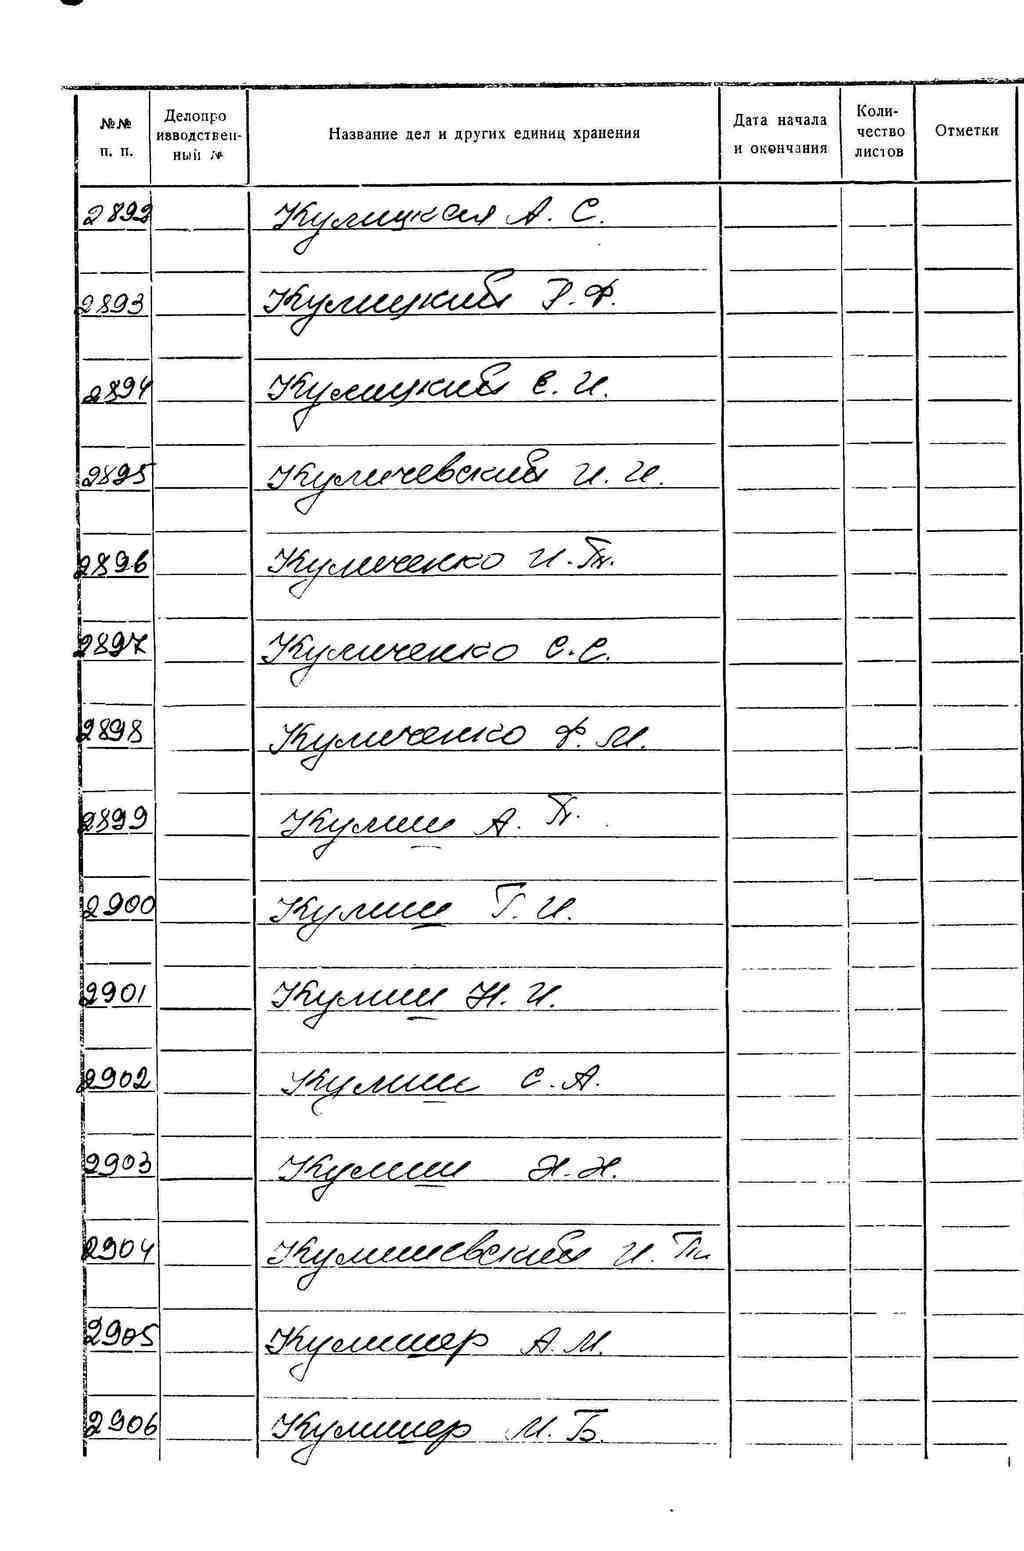 №№ п. п. Делопроизводственный № Название дел и других единиц хранения Дата начала и окончания Количество листов Отметки
2892 Кулицкая А. С.
2893 Кулицкий Р. Ф.
2894 Кулицкий Е. И.
2895 Куличевский И. И.
2896 Куличенко И. Гр.
2897 Куличенко С. С.
2898 Куличенко Ф. М.
2899 Кулиш А.
2900 Кулиш Г. И.
2901 Кулиш Н. И.
2902 Кулиш С. А.
2903 Кулиш Н. Н.
2904 Кулишевский И.
2905 Кулишер А. М.
2906 Кулишер М. Б.